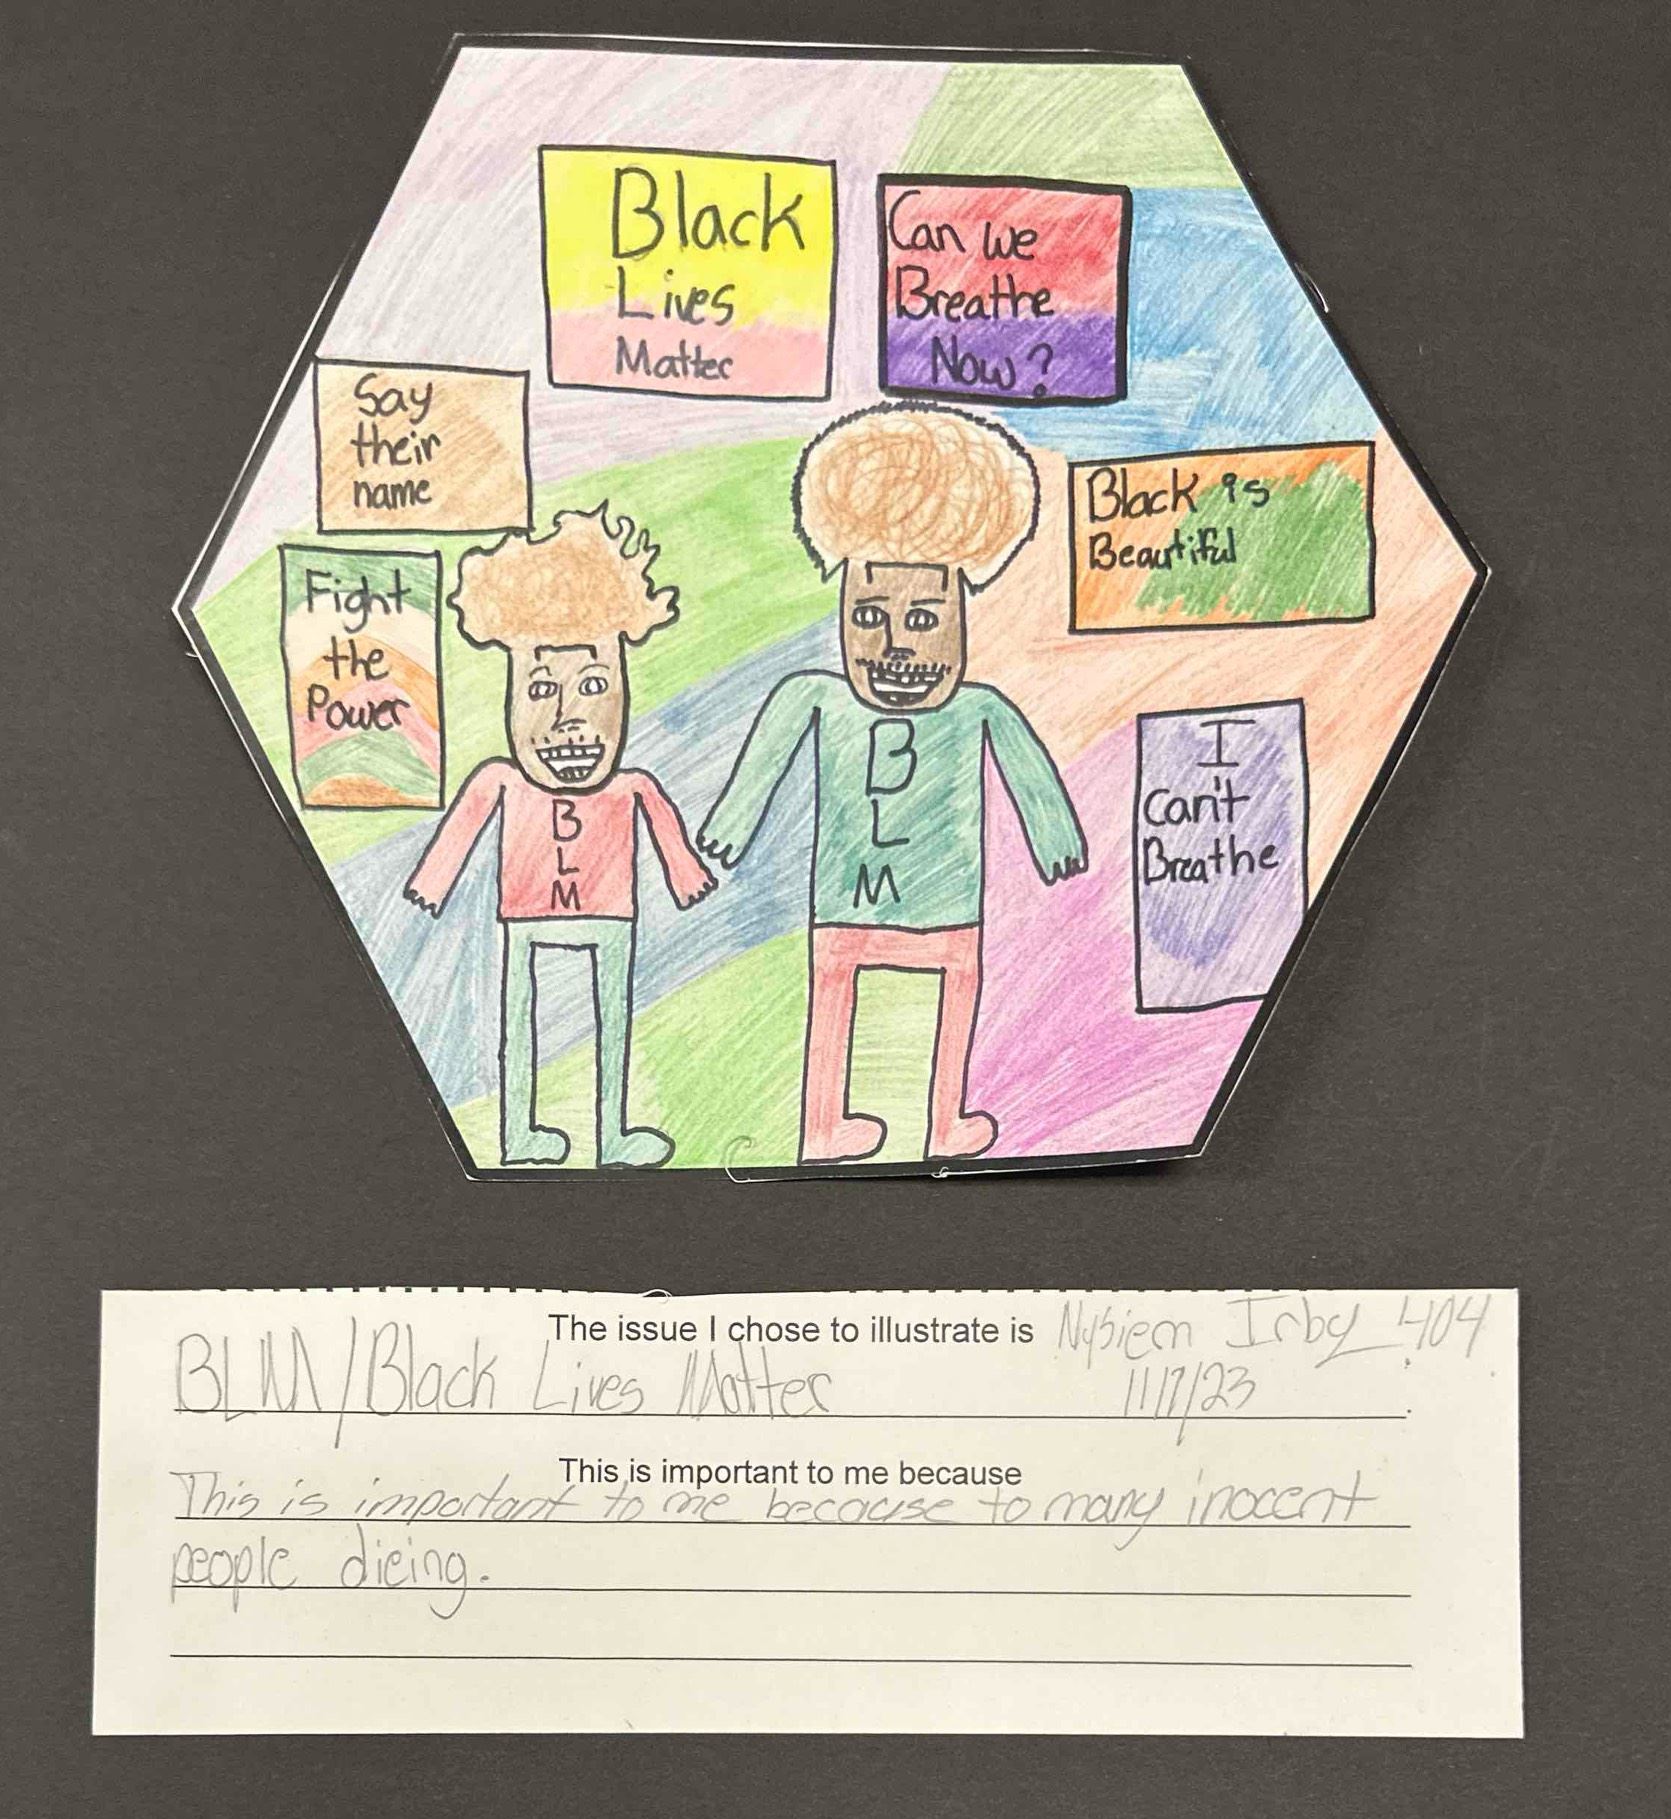 Black
Lives
Matter
Can we
Breathe
Now?
Say
their
name
Black is
Beautiful
Fight
the
Power
I
can't
Breathe
B
L
M
B
L
M
The issue I chose to illustrate is Irby 404
BLM/Black Lives Matter 11/7/23
This is important to me because
This is important to me because to many inocent
people dieing.